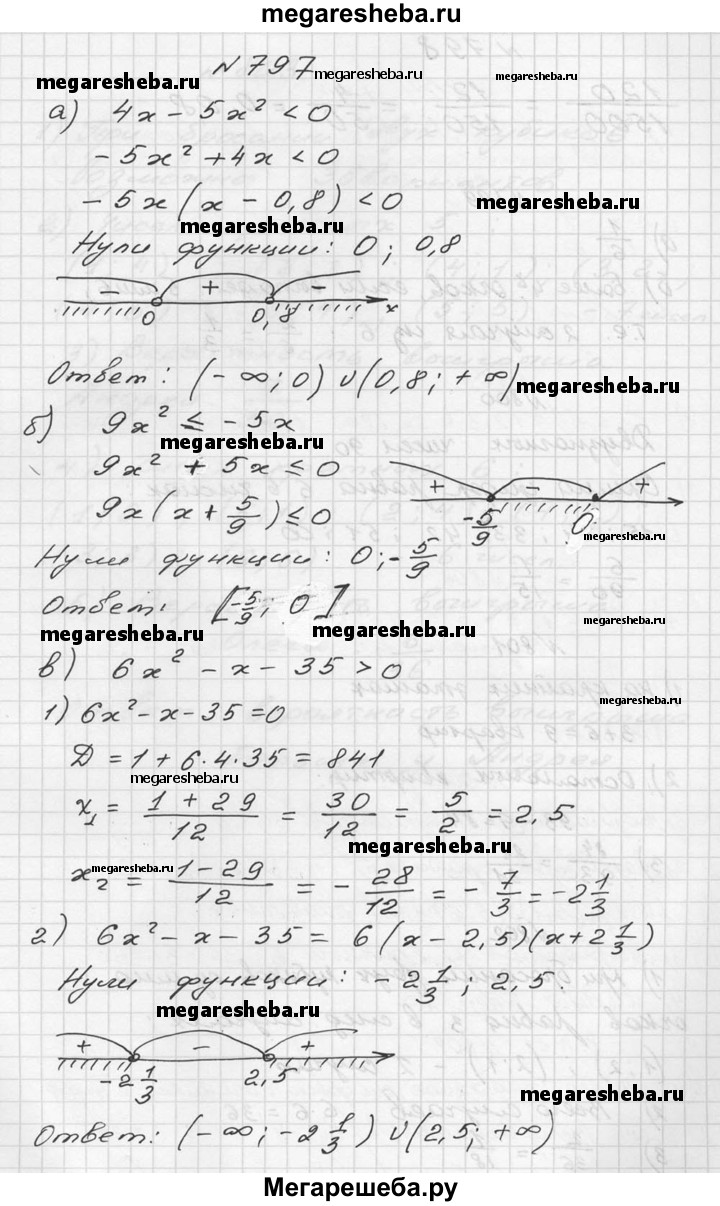 megaresheba.ru
N 797 megaresheba.ru
megaresheba.ru
а) 4x - 5x² < 0
- 5x² + 4x < 0
- 5x (x - 0,8) < 0
megaresheba.ru
megaresheba.ru
Нули функции: 0; 0,8
- + -
0 0,8 x
Ответ: (- ∞; 0) ∪ (0,8; + ∞)
megaresheba.ru
б) 9x² ≤ - 5x
megaresheba.ru
9x² + 5x ≤ 0
+ - +
-5/9 0
9x (x + 5/9) ≤ 0
megaresheba.ru
Нули функции: 0; -5/9
Ответ: [-5/9; 0]
megaresheba.ru
megaresheba.ru
megaresheba.ru
в) 6x² - x - 35 > 0
megaresheba.ru
1) 6x² - x - 35 = 0
D = 1 + 6·4·35 = 841
megaresheba.ru
x₁ = (1 + 29)/12 = 30/12 = 5/2 = 2,5
megaresheba.ru
megaresheba.ru
x₂ = (1 - 29)/12 = - 28/12 = - 7/3 = -2 1/3
г) 6x² - x - 35 = 6 (x - 2,5)(x + 2 1/3)
Нули функции: - 2 1/3; 2,5.
megaresheba.ru
+ - +
-2 1/3 2,5
megaresheba.ru
Ответ: (- ∞; -2 1/3) ∪ (2,5; + ∞)
Мегарешеба.ру